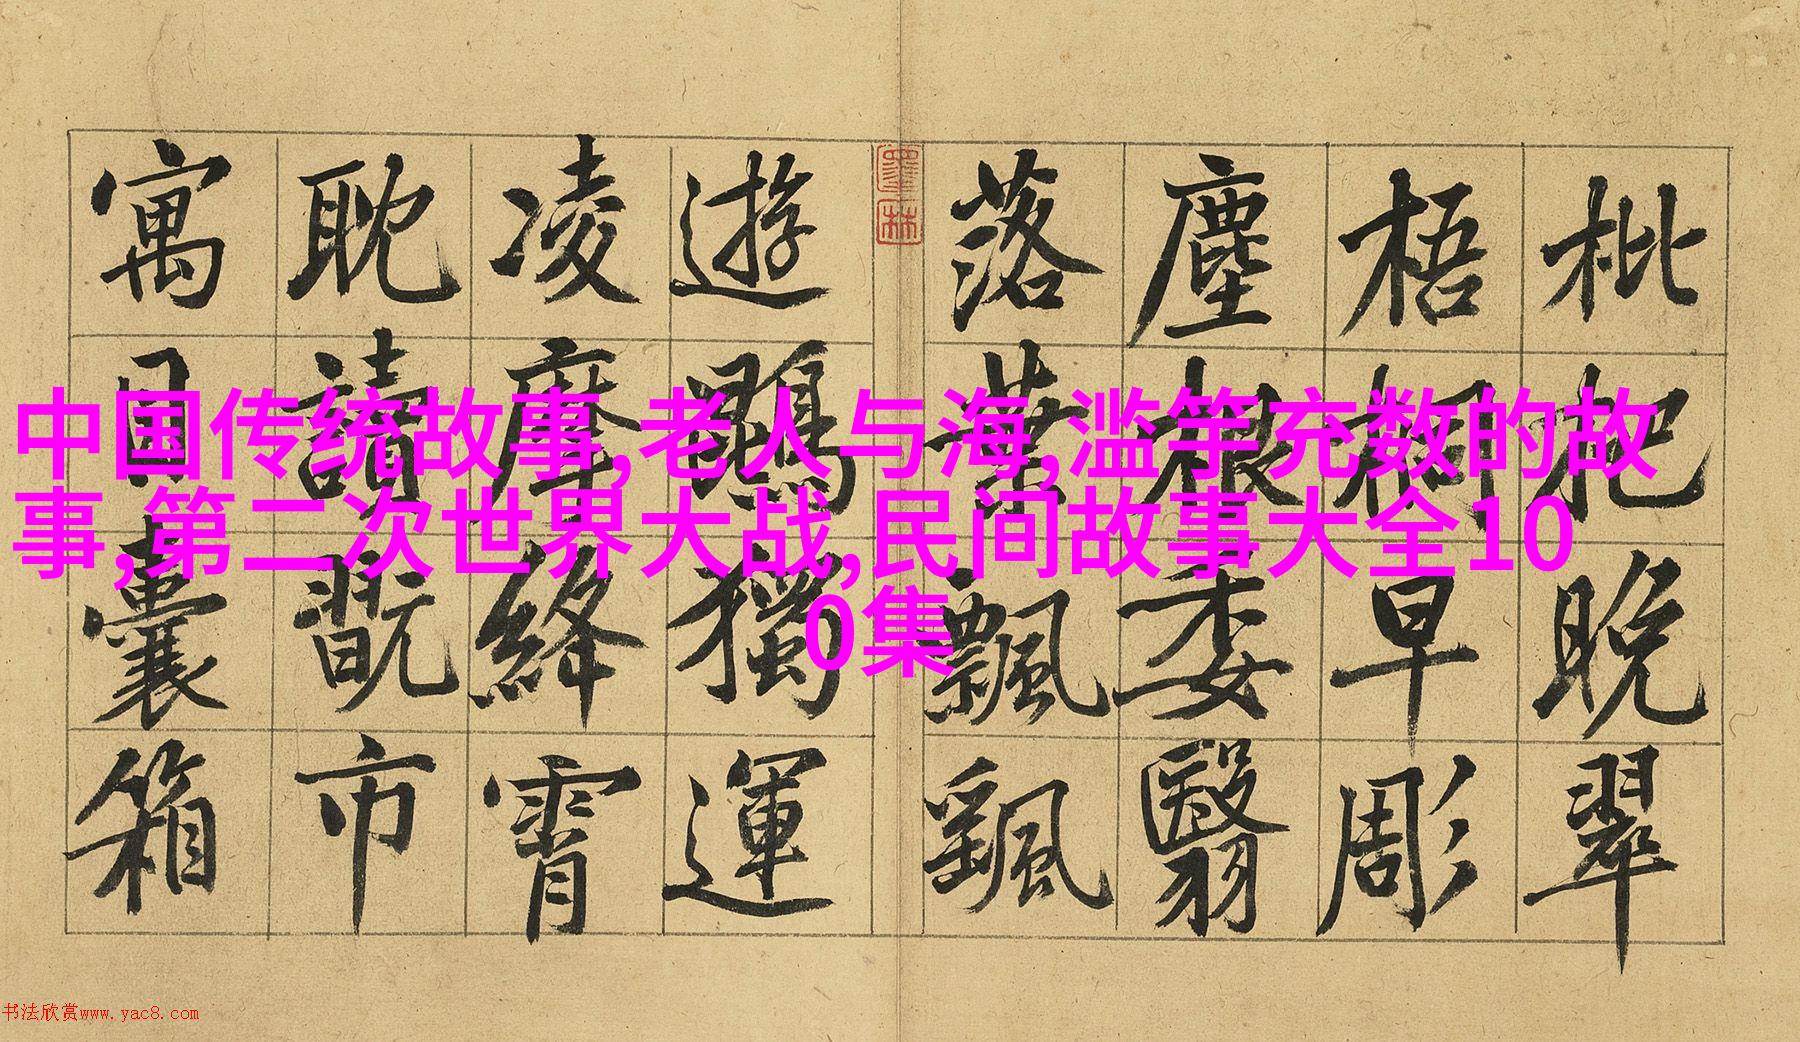 枇杷晚翠
梧桐早彫
塵根委翳
落葉飄颻
墨林
遊鵾獨運
凌摩絳霄
耽讀翫市
寓目囊箱
中国传统故事,老人与海,滥竽充数的故
事,第二次世界大战,民间故事大全10
0集
书法欣赏www.yac8.com